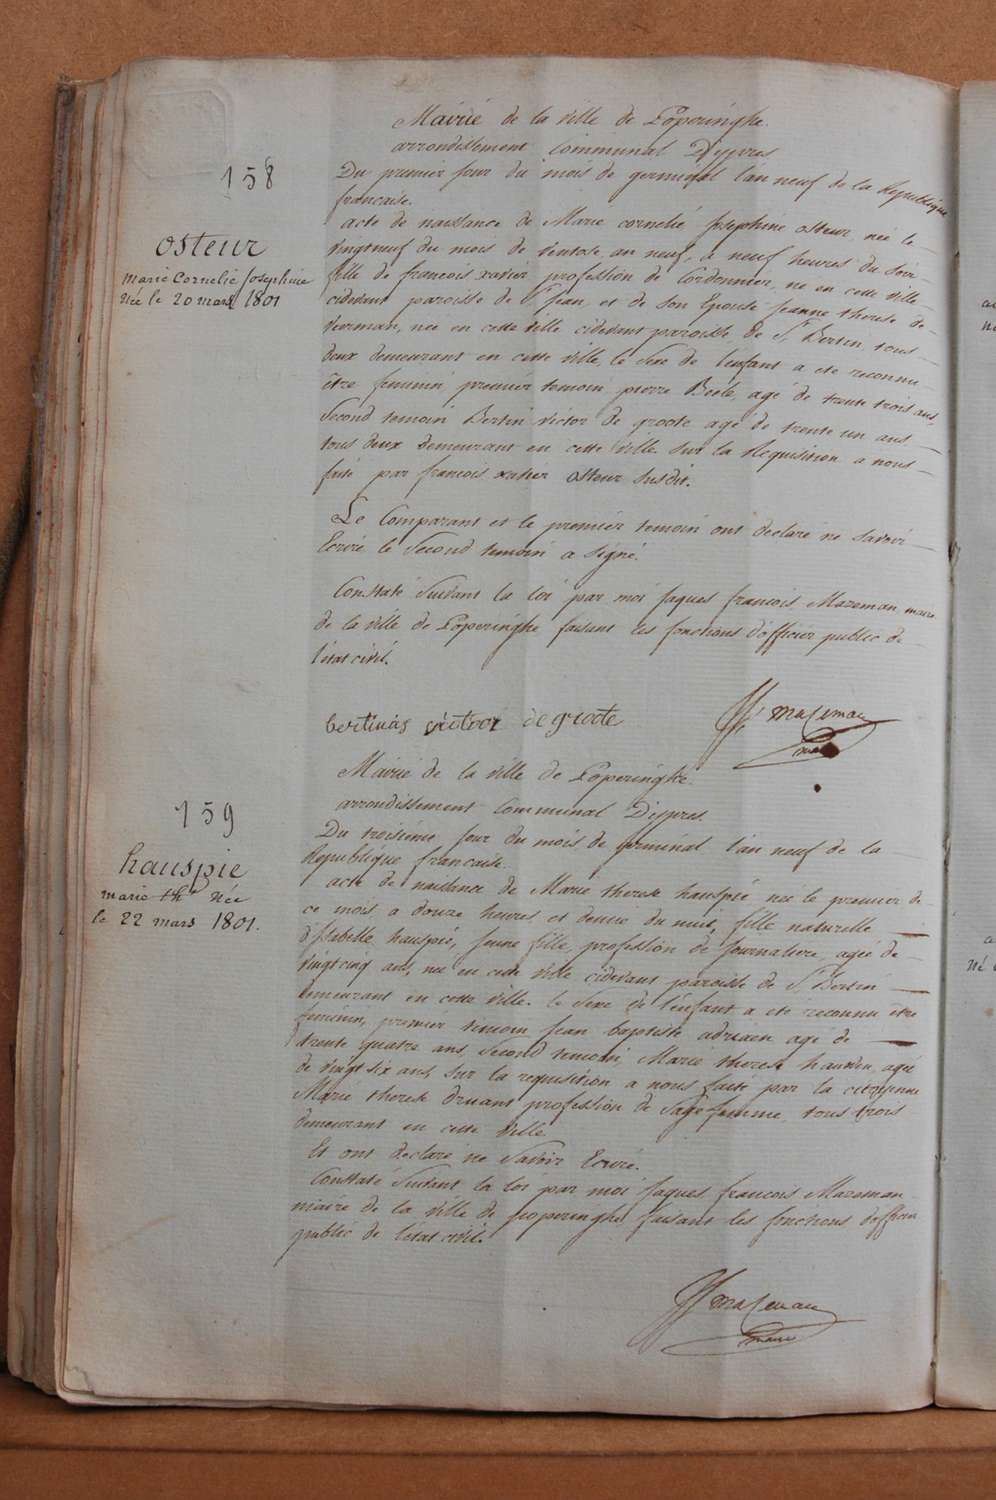 158
osteur
marie Cornelie Josephine
Née le 20 mars 1801
Mairie de la ville de Poperinghe.
arrondissement Communal D'ypres
Du premier jour du mois de germinal l'an neuf de la Republique
francaise.
acte de naissance de Marie cornelie Josephine osteur née le
vingtneuf du mois de ventose an neuf, a neuf heures du soir
fille de francois xavier profession de Cordonnier, né en cette ville
cidevant paroisse de St Jean, et de son Epouse Jeanne therese de
veerman, née en cette ville cidevant paroisse de St Bertin tous
deux demeurant en cette ville, le Sexe de l'enfant a eté reconnu
être feminin premier temoin pierre Beele, agé de trente trois ans,
Second temoin Bertin victor de groote agé de trente un ans
tous deux demeurant en cette ville sur la Requisition a nous
faite par francois xavier osteur susdit.
Le Comparant et le premier temoin ont declaré ne savoir
Ecrire le Second temoin a signé.
Constaté Suivant la loi par moi jaques francois Mazeman maire
de la ville de Poperinghe faisant les fonctions d'officier public de
l'état civil.
bertinus victoor de groote
JJ mazeman
maire
159
hauspie
marie thse Née
le 22 mars 1801.
Mairie de la ville de Poperinghe.
arrondissement Communal D'ypres.
Du troisième jour du mois de germinal l'an neuf de la
Republique francaise.
acte de naissance de Marie therese hauspié née le premier de
ce mois a douze heures et demie du nuit, fille naturelle
d'Isabelle hauspié, jeune fille, profession de journaliere, agée de
vingtcinq ans, née en cette ville cidevant paroisse de St Bertin
demeurant en cette ville. le Sexe de l'enfant a eté reconnu être
feminin, premier temoin Jean baptiste adriaen agé de
trente quatre ans, Second temoin, Marie therese agée
de vingt six ans, sur la requisition a nous faite par la citoyenne
Marie therese druant profession de Sage femme tous trois
demeurant en cette ville
Et ont declaré ne savoir Ecrire.
Constaté Suivant la loi par moi jaques francois Mazeman
maire de la ville de poperinghe faisant les fonctions d'officier
public de l'état civil.
JJ mazeman
maire